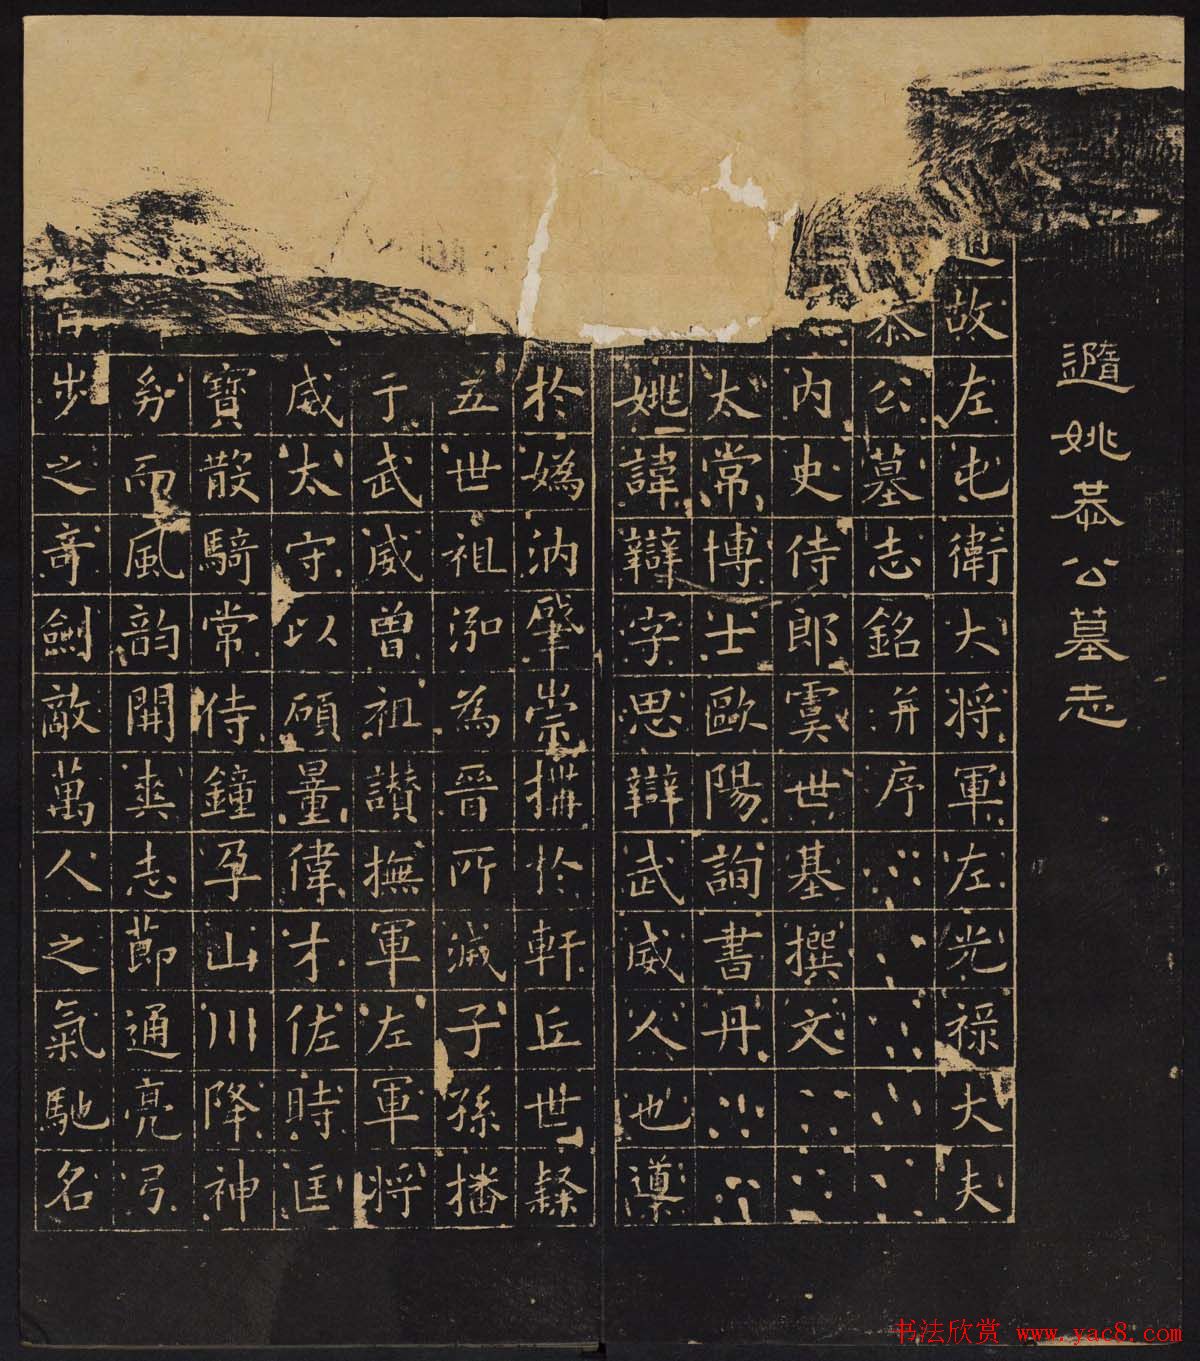 隨姚恭公墓志
故左屯衛大將軍左光祿大夫
恭公墓志銘并序
內史侍郎虞世基撰文
太常博士歐陽詢書丹
姚諱辯字思辯武威人也導
於媯汭肇崇構於軒丘世繇
五世祖泓為晉所滅子孫播
于武威曾祖讃撫軍左軍將
威太守以碩量偉才佐時匡
寶散騎常侍鐘孕山川降神
而風韵開爽志節通亮弓
步之奇劍敵萬人之氣馳名
书法欣赏 www.yac8.com